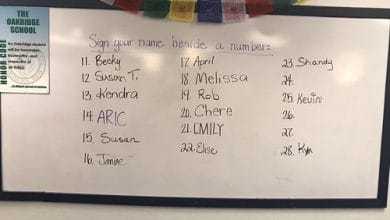 THE
OAKRIDGE
SCHOOL
HONOR CODE
An Oakridge student
will be honorable,
trustworthy and
respectful at
all times.
Sign your name beside a number:
11. Becky
12. Susan T.
13. Kendra
14. ARIC
15. Susan
16. Janine
17. April
18. Melissa
19. Rob
20. Chere
21. EMILY
22. Elise
23. Shandy
24.
25. Kevin
26.
27.
28. Kym